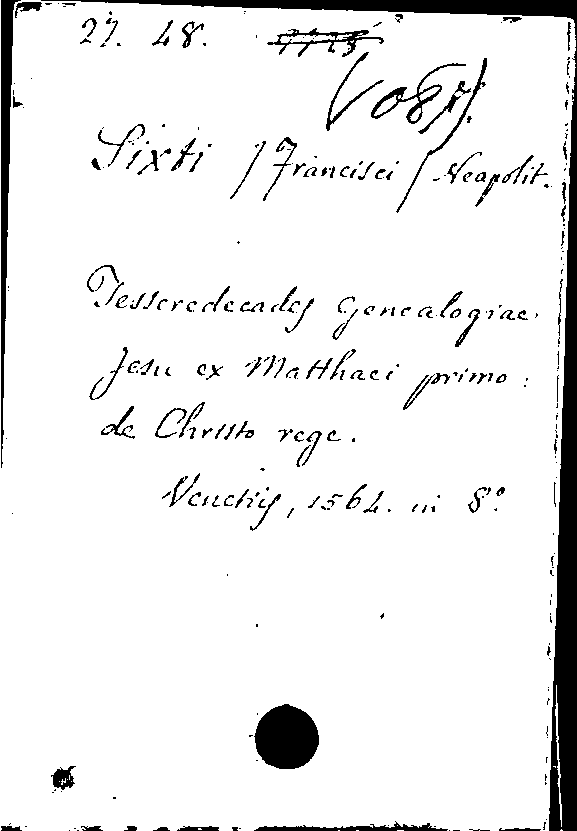 27. 48.
Sixti / Francisci / Neapolit.
Tesseredecades Genealogiae
Jesu ex Matthaei primo:
de Christo rege.
Venetiis, 1564. in 8º.